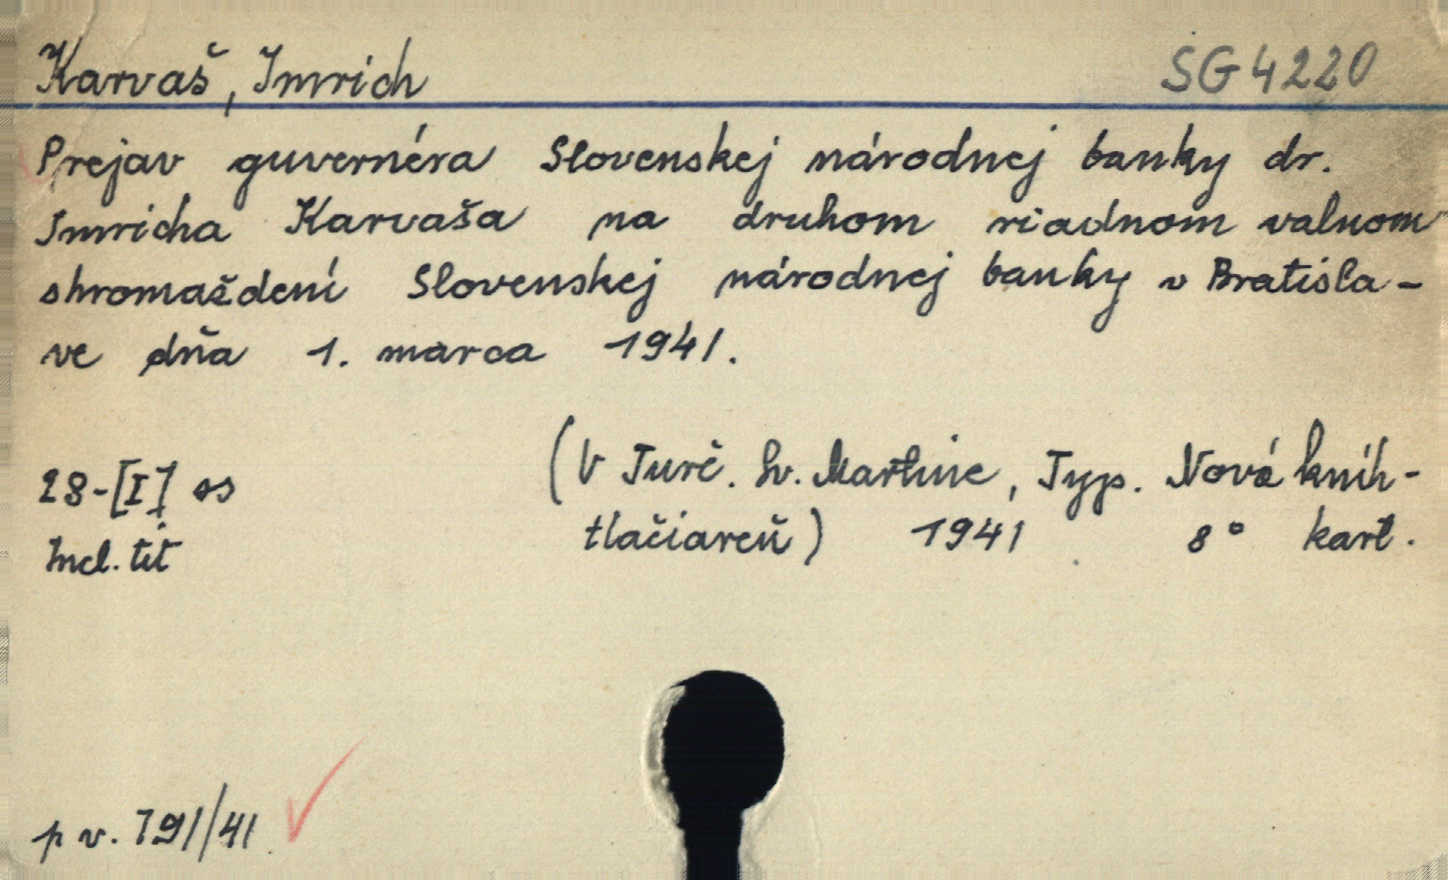 Karvaš, Imrich SG 4220
Prejav guvernéra Slovenskej národnej banky dr.
Imricha Karvaša na druhom riadnom valnom
shromaždení Slovenskej národnej banky v Bratisla-
ve dňa 1. marca 1941.
(V Turč. Sv. Martine, Typ. Nová kníh-
28-[I] ss
tlačiareň) 1941 8° kart.
Incl. tit
p v. 791/41